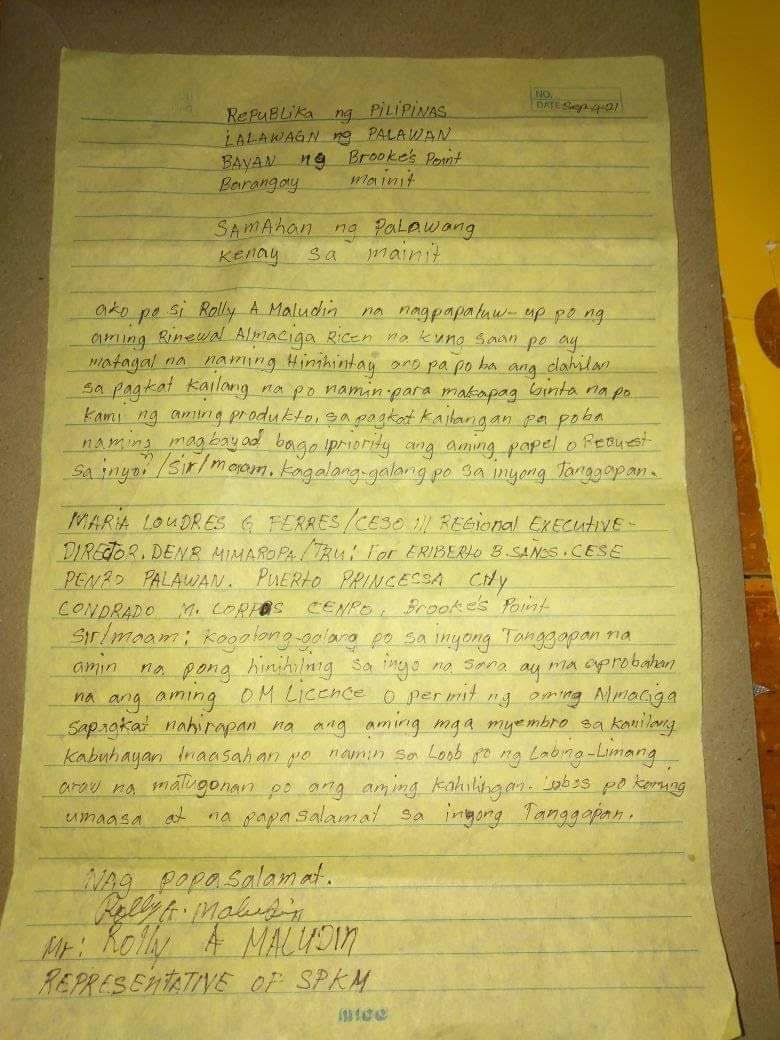 NO.
DATE Sep-4-21
RePUBLiKa ng PiLIPiNAS
LALAWAGN ng PALAWAN
BAYAN ng Brooke's Point
Barangay mainit
SAMAhan ng PaLawang
Kenay sa mainit
ako po si Rolly A Maludin na nagpapaluw-up po ng
aming Rinewal Almaciga Ricen na kung saan po ay
matagal na naming Hinihintay ano pa po ba ang dahilan
sa pagkat kailang na po namin para makapag binta na po
kami ng aming produkto. sa pagkat kailangan pa poba
naming magbayad bago ipriority ang aming papel o Request
sa inyo /Sir/maam. kagalang-galang po sa inyong Tanggapan.
MARIA LOUDRES G FERRES/CESO III REGional EXECUTIVE-
DIRECTOR. DENR MIMAROPA/TRU: For ERIBERTO B. SAÑOS. CESE
PENRO PALAWAN. PUERTO PRINCESSA City
CONDRADO M. CORPOS CENPO, Brooke's Point
Sir/maam: kagalang-galang po sa inyong Tanggapan na
amin na pong hinihiling sa inyo na sana ay ma aprobahan
na ang aming OM Licence o permit ng aming Almaciga
sapagkat nahirapan na ang aming mga myembro sa kanilang
kabuhayan Inaasahan po namin sa Loob po ng Labing-Limang
araw na matugonan po ang aming kahilingan. Lobos po kaming
umaasa at na papasalamat sa inyong Tanggapan.
NAg papasalamat.
Rolly A. Maludin
Mr: Rolly A MALUDIN
REPRESENTATIVE OF SPKM